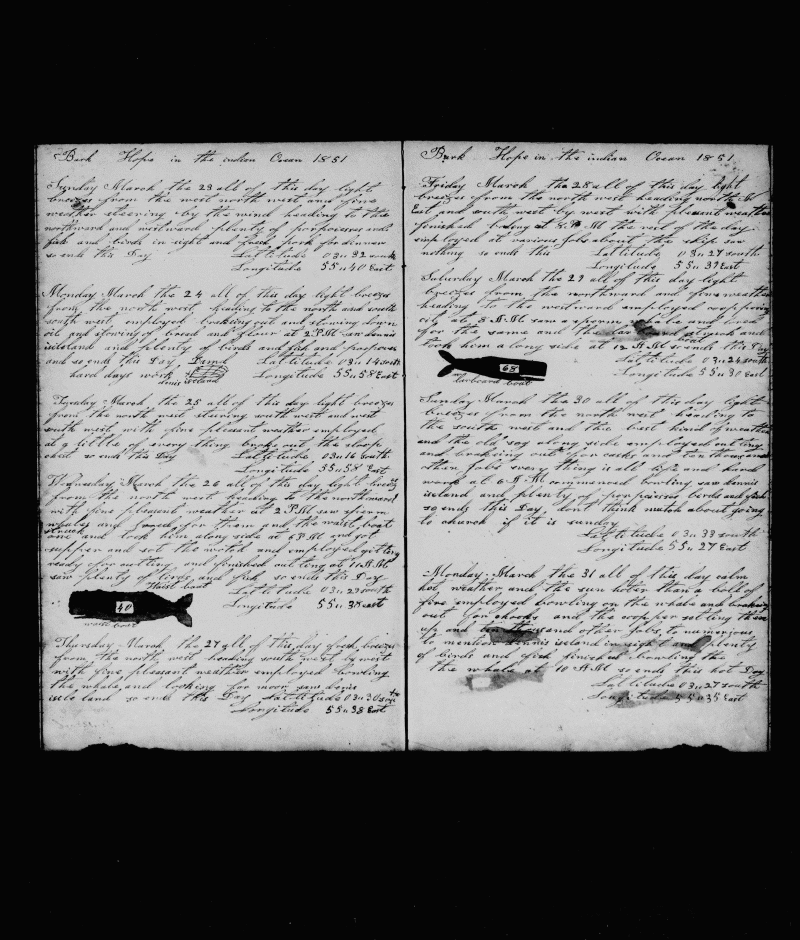 Bark Hope in the indian Ocean 1851
Sunday March the 23 all of this day light
breezes from the west north west and fine
weather steering by the wind heading to the
northward and westward plenty of porpoises and
fish and birds in sight and fresh pork for dinner
so ends this Day Lattitude 03 " 32 south
Longitude 55 " 40 East
Monday March the 24 all of this day light breezes
from the north west heading to the north and south
south west employed breaking out and stowing down
oil and stowing bread and flour at 2 PM saw dennis
iseland and plenty of birds and fish and porposes
and so ends this Day Lattitude 03 " 14 south
hard days work Longitude 55 " 58 East
denis iseland
Tuesday March the 25 all of this day light breezes
from the north west steering south west and west
south west with fine pleasent weather employed
at a little of every thing broke out the slop
chest so ends this Day Lattitude 03 " 16 south
Longitude 55 " 58 East
Wednesday March the 26 all of this day light breezes
from the north west heading to the northward
with fine pleasent weather at 2 PM saw sperm
whales and lowed for them and the waist boat
struck
one and took him along side at 6 PM and got
supper and sot the watch and employed getting
ready for cutting and finished cutting at 11 AM
saw plenty of birds and fish so ends this Day
Waist boat Lattitude 03 " 27 south
40 Longitude 55 " 38 east
waist boat
Thursday March the 27 all of this day fresh breezes
from the north west heading south west by west
with fine pleasent weather employed bowling
the whale and looking for more saw denis
isele land so ends this Day Lattitude 03 " 30 south
Longitude 55 " 38 East
Bark Hope in the indian Ocean 1851
Friday March the 28 all of this day light
breezes from the north west heading north
East and south west by west with pleasent weather
finished boileng at 8 PM the rest of the day
employed at various jobs about the ship saw
nothing so ends this Lattitude 03 " 27 south
Longitude 55 " 37 East
Saturday March the 29 all of this day light
breezes from the northward and fine weather
heading to the westward employed coopering
oil at 8 AM saw a sperm whale and
for the same and the larboard struck and
boat
took him a long side at 12 AM so ends this Day
68 Lattitude 03 " 24 south
Longitude 55 " 30 East
larboard boat
Sunday March the 30 all of this day light
breezes from the north west heading to
the south west and the best kind of weather
and the old sog along side employed cutting
and breaking out for casks and ten thousand
other Jobs every thing is all and hard
work at 6 AM commenced bowling saw dennis
iseland and plenty of porpoises birds and fish
so ends this Day dont think mutch about going
to church if it is sunday
Lattitude 03 " 33 south
Longitude 55 " 27 East
Monday March the 31 all of this day calm
hot weather and the sun hoter than a bolt of
fire employed bowling on the whale and breaking
out for shooks and the cooper setting them
up and ten thousand other Jobs to numerious
to mention dennis iseland in sight and plenty
of birds and fish finished bowling the
the whale at 10 AM so ends this hot Day
Lattitude 03 " 27 south
Longitude 55 " 35 East